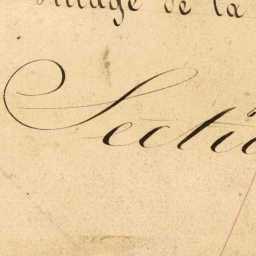 village de la
Sectio